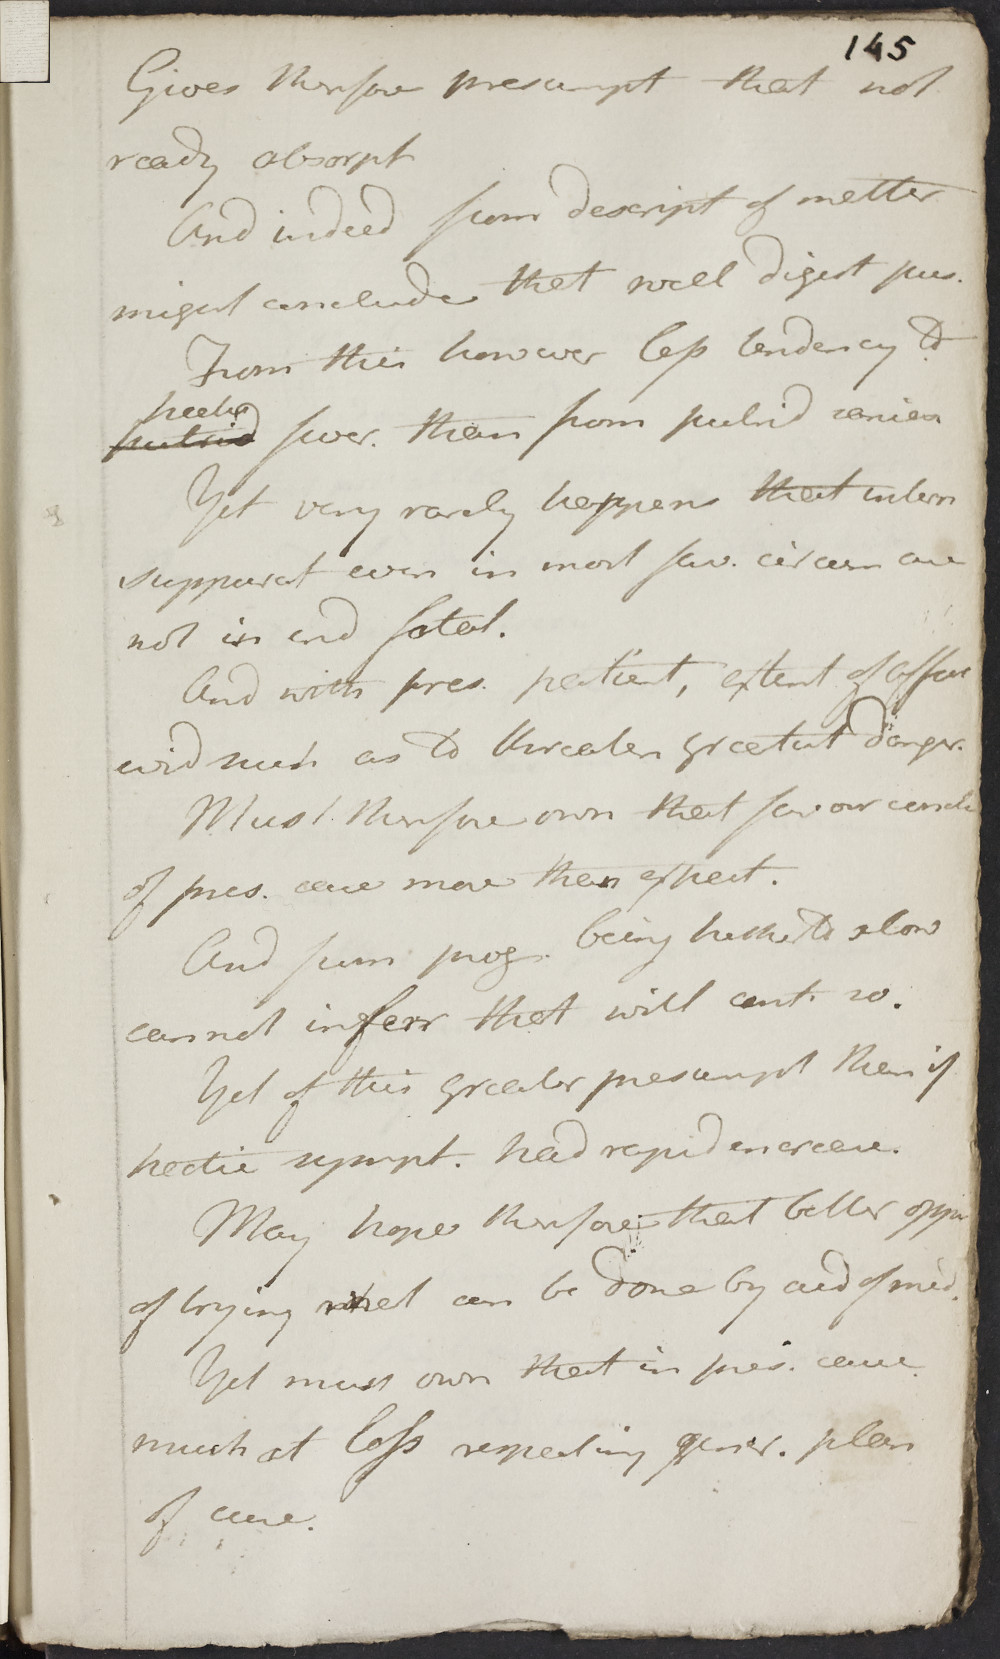 145
Gives therefore presumpt that not
ready absorpt
And indeed from descript of matter
might conclude that well digest pus.
From this however less tendency to
hectic
putrid fever. than from putrid sanies
Yet very rarely happens that intern
suppurat even in most fav. circum are
not in end fatal.
And with pres. patient, extent of affect
evid such as to threaten greatest danger.
Must therefore own that favour
of pres. case more than expect.
And from prog. being hitherto slow
cannot inferr that will cont. so.
Yet of this greater presumpt than if
hectic sympt. had rapid increase.
May hope therefore that better oppor
of trying what can be done by aid of med.
Yet must own that in pres. case
much at loss respecting gener. plan
of cure.